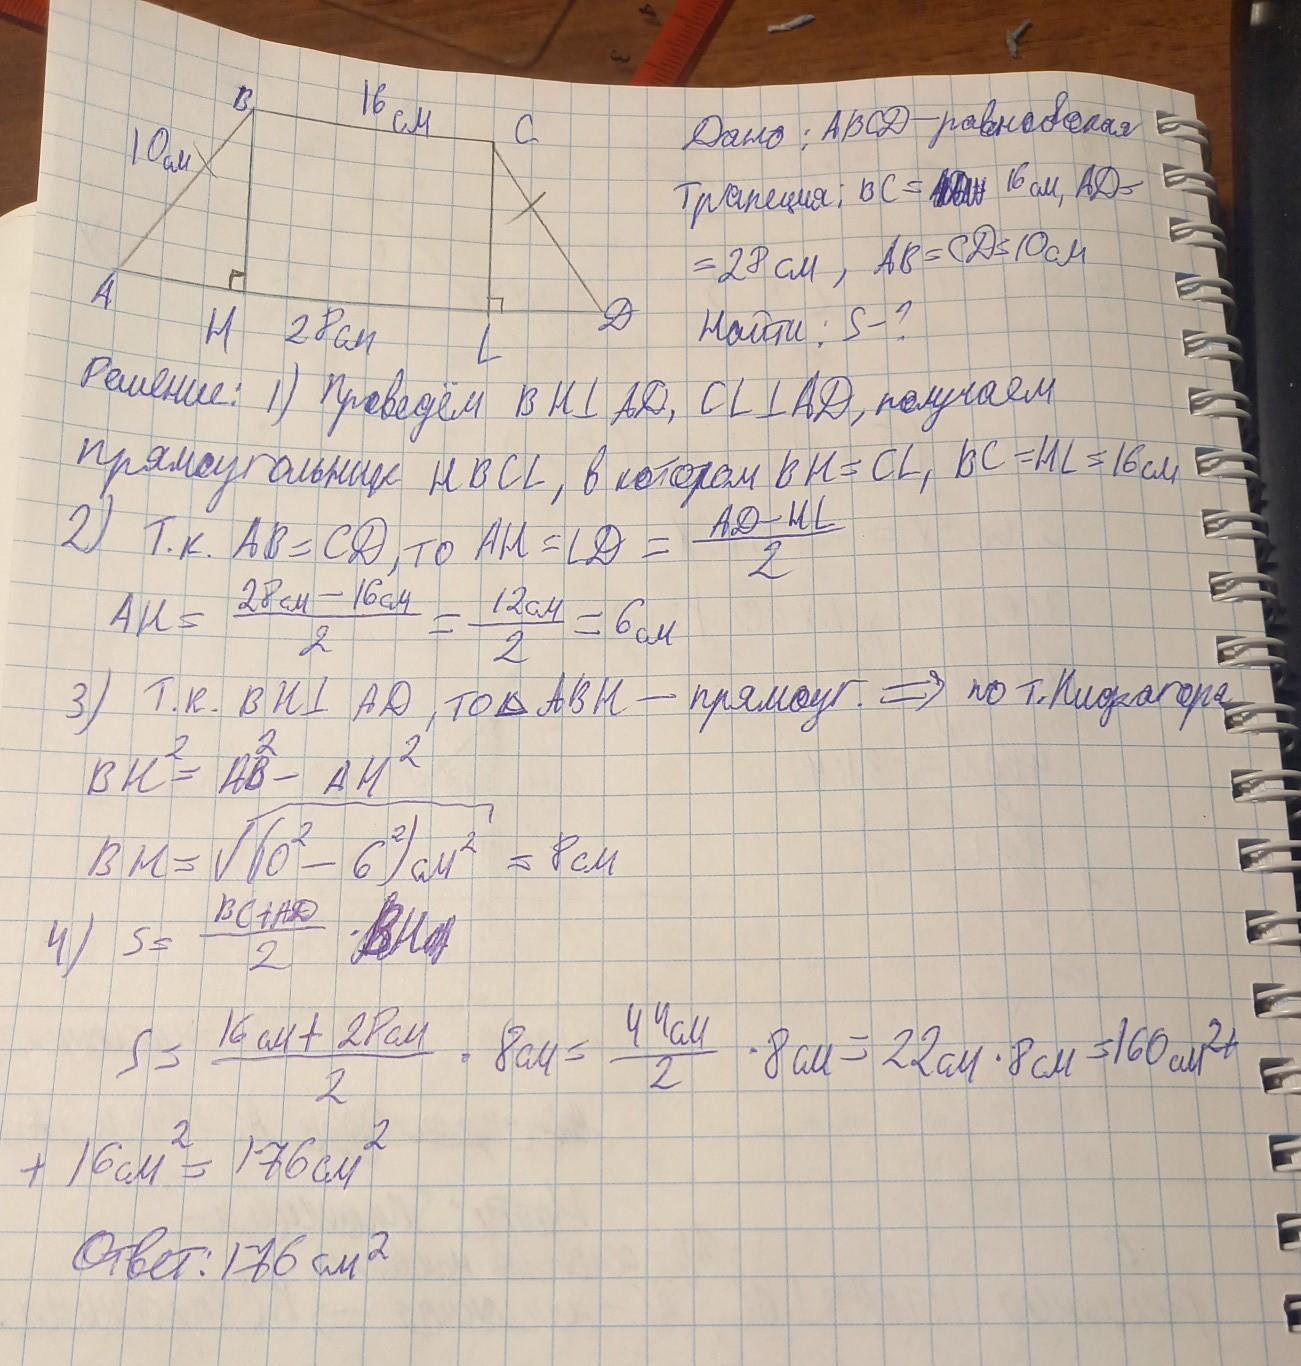 B 16 см C
10 см
A H 28 см L D
Дано: ABCD – равнобокая
трапеция; BC = 16 см, AD =
= 28 см, AB = CD = 10 см
Найти: S – ?
Решение: 1) Проведём BH ⊥ AD, CL ⊥ AD, получаем
прямоугольник HBCL, в котором BH = CL, BC = HL = 16 см
2) Т.к. AB = CD, то AH = LD = (AD – HL)/2
AH = (28 см – 16 см)/2 = 12 см/2 = 6 см
3) Т.к. BH ⊥ AD, то △ ABH – прямоуг. ⇒ по т. Пифагора
BH² = AB² – AH²
BH = √(10² – 6²) см² = 8 см
4) S = (BC + AD)/2 · BH
S = (16 см + 28 см)/2 · 8 см = 44 см/2 · 8 см = 22 см · 8 см = 160 см² +
+ 16 см² = 176 см²
Ответ: 176 см²